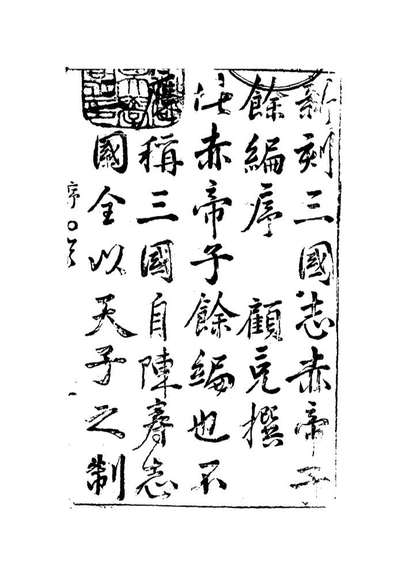 新刻三國志赤帝子
餘編序 顧充撰
此赤帝子餘編也不
應稱三國自陳壽志
國全以天子之制
序